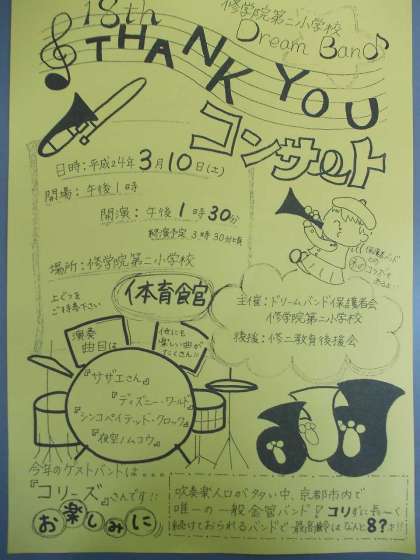 18th
修学院第二小学校
Dream Band
THANK YOU
コンサート
日時:平成24年3月10日(土)
開場:午後1時
開演:午後1時30分
終演予定3時30分頃
場所:修学院第二小学校
体育館
上ぐつを
ご持参下さい
保護者バンド
との
コラボで
主催:ドリームバンド保護者会
修学院第二小学校
後援:修二教育後援会
演奏
曲目は
他にも
楽しい曲が
たくさん!!
『サザエさん』
『ディズニー・ワールド』
『シンコペイテッド・クロック』
『夜空ノムコウ』
今年のゲストバンドは…
『コリーズ』さんです!!
お楽しみに
吹奏楽人口が多い中、京都市内で
唯一の一般金管バンド!コリずに長~く
続けておられるバンドで最高齢はなんと8?才!!